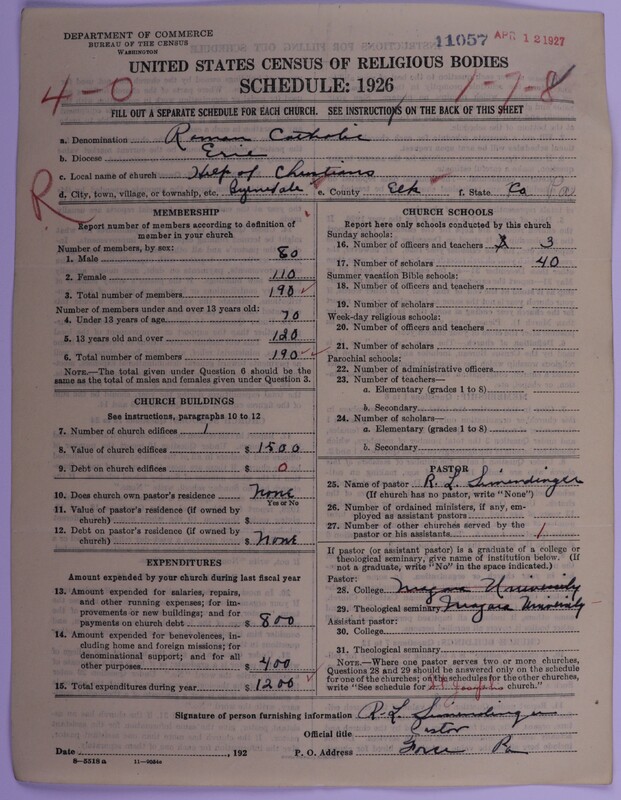 DEPARTMENT OF COMMERCE
BUREAU OF THE CENSUS
WASHINGTON
11057 APR 12 1927
UNITED STATES CENSUS OF RELIGIOUS BODIES
SCHEDULE: 1926
4-0
1-7-8
FILL OUT A SEPARATE SCHEDULE FOR EACH CHURCH. SEE INSTRUCTIONS ON THE BACK OF THIS SHEET
a. Denomination Roman Catholic
b. Diocese Erie
c. Local name of church Help of Christians
R
d. City, town, village, or township, etc. Byrnedale e. County Elk f. State Pa
MEMBERSHIP
Report number of members according to definition of member in your church
Number of members, by sex:
1. Male 80
2. Female 110
3. Total number of members 190
Number of members under and over 13 years old:
4. Under 13 years of age 70
5. 13 years old and over 120
6. Total number of members 190
NOTE.—The total given under Question 6 should be the same as the total of males and females given under Question 3.
CHURCH BUILDINGS
See instructions, paragraphs 10 to 12
7. Number of church edifices 1
8. Value of church edifices $ 1500
9. Debt on church edifices $ 0
10. Does church own pastor's residence none
Yes or No
11. Value of pastor's residence (if owned by church) $
12. Debt on pastor's residence (if owned by church) $ none
EXPENDITURES
Amount expended by your church during last fiscal year
13. Amount expended for salaries, repairs, and other running expenses; for improvements or new buildings; and for payments on church debt $ 800
14. Amount expended for benevolences, including home and foreign missions; for denominational support; and for all other purposes $ 400
15. Total expenditures during year $ 1200
CHURCH SCHOOLS
Report here only schools conducted by this church
Sunday schools:
16. Number of officers and teachers 3
17. Number of scholars 40
Summer vacation Bible schools:
18. Number of officers and teachers
19. Number of scholars
Week-day religious schools:
20. Number of officers and teachers
21. Number of scholars
Parochial schools:
22. Number of administrative officers
23. Number of teachers—
a. Elementary (grades 1 to 8)
b. Secondary
24. Number of scholars—
a. Elementary (grades 1 to 8)
b. Secondary
PASTOR
25. Name of pastor R. L. Simendinger
(If church has no pastor, write "None")
26. Number of ordained ministers, if any, employed as assistant pastors
27. Number of other churches served by the pastor or his assistants 1
If pastor (or assistant pastor) is a graduate of a college or theological seminary, give name of institution below. (If not a graduate, write "No" in the space indicated.)
Pastor:
28. College Niagara University
29. Theological seminary Niagara University
Assistant pastor:
30. College
31. Theological seminary
NOTE.—Where one pastor serves two or more churches, Questions 28 and 29 should be answered only on the schedule for one of the churches; on the schedules for the other churches, write "See schedule for St. Josephs church."
Signature of person furnishing information R. L. Simendinger
Official title Pastor
Date , 192 P. O. Address Force Pa
8—5518 a